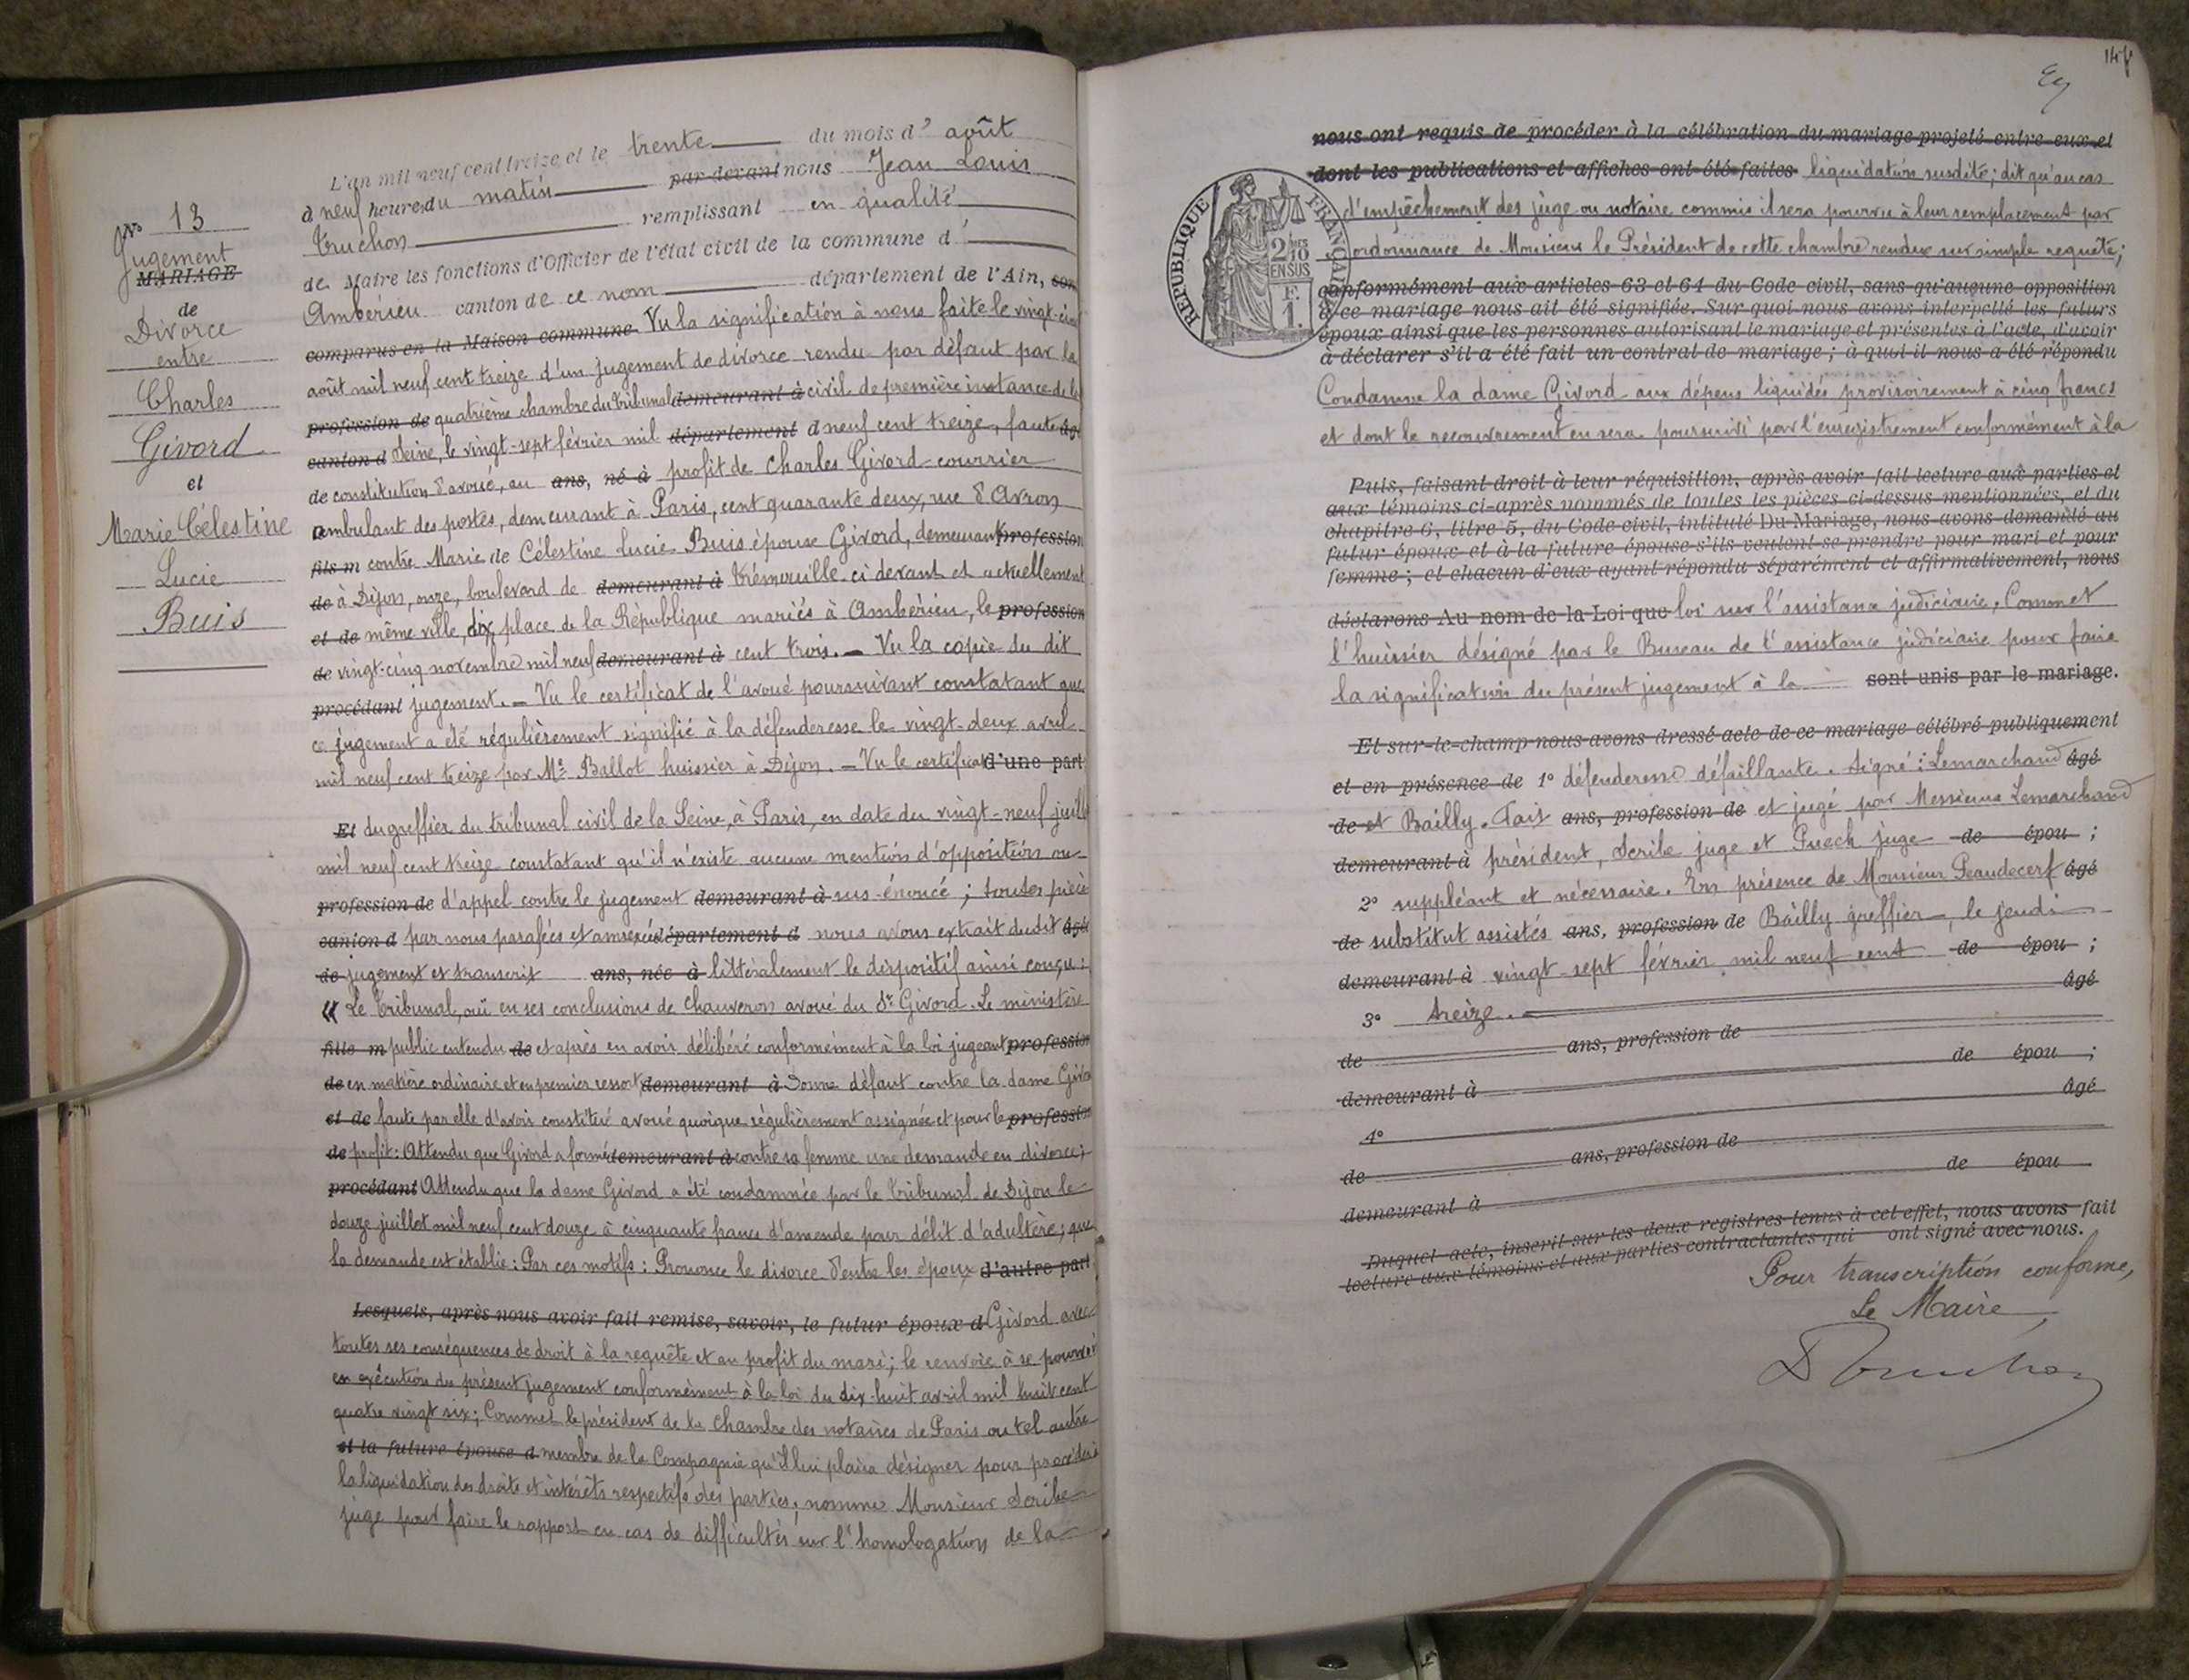 N° 13
Jugement
MARIAGE
de
Divorce
entre
Charles
Givord
et
Marie Célestine
Lucie
Buis
L'an mil neuf cent treize et le trente du mois d' août
à neuf heures du matin par devant nous Jean Louis
Truchon remplissant en qualité
de Maire les fonctions d'Officier de l'état civil de la commune d'
Ambérieu canton de ce nom département de l'Ain, son
comparus en la Maison commune Vu la signification à nous faite le vingt-cinq
août mil neuf cent treize d'un jugement de divorce rendu par défaut par la
profession de quatrième chambre du tribunal demeurant à civil de première instance de la
canton d Seine, le vingt-sept février mil département d neuf cent treize, faute âgé
de constitution d'avoué, au ans, né à profit de Charles Givord courrier
ambulant des postes, demeurant à Paris, cent quarante deux, rue d'Avron
fils m contre Marie de Célestine Lucie Buis épouse Givord, demeurant profession
de à Dijon, onze, boulevard de demeurant à Trémouille ci devant et actuellement
et de même ville, dix, place de la République mariés à Ambérieu, le profession
de vingt-cinq novembre mil neuf demeurant à cent trois. — Vu la copie du dit
procédant jugement. — Vu le certificat de l'avoué poursuivant constatant que
ce jugement a été régulièrement signifié à la défenderesse le vingt-deux avril
mil neuf cent treize par Me Ballot huissier à Dijon. — Vu le certificat d'une part
Et du greffier du tribunal civil de la Seine, à Paris, en date du vingt-neuf juillet
mil neuf cent treize constatant qu'il n'existe aucune mention d'opposition ou
profession de d'appel contre le jugement demeurant à sus-énoncé ; toutes pièces
canton d par nous parafées et annexées département d nous avons extrait dudit âgée
de jugement et transcrit ans, née à littéralement le dispositif ainsi conçu :
« Le Tribunal, ouï en ses conclusions de Chauveron avoué du Sr Givord. Le ministère
fille m public entendu de et après en avoir délibéré conformément à la loi jugeant profession
de en matière ordinaire et en premier ressort, demeurant à Donne défaut contre la dame Givord
et de faute par elle d'avoir constitué avoué quoique régulièrement assignée et pour le profession
de profit : Attendu que Givord a formé demeurant à contre sa femme une demande en divorce ;
procédant Attendu que la dame Givord a été condamnée par le Tribunal de Dijon le
douze juillet mil neuf cent douze à cinquante francs d'amende pour délit d'adultère ; que
la demande est établie : Par ces motifs : Prononce le divorce d'entre les époux d'autre part
Lesquels, après nous avoir fait remise, savoir, le futur époux d Givord avec
toutes ses conséquences de droit à la requête et au profit du mari ; le renvoie à se pourvoir
en exécution du présent jugement conformément à la loi du dix-huit avril mil huit cent
quatre vingt six ; Commet le président de la Chambre des notaires de Paris ou tel autre
et la future épouse d membre de la Compagnie qu'il lui plaira désigner pour procéder à
la liquidation des droits et intérêts respectifs des parties, nomme Monsieur Scribe
juge pour faire le rapport en cas de difficultés sur l'homologation de la
147
nous ont requis de procéder à la célébration du mariage projeté entre eux et
dont les publications et affiches ont été faites liquidation susdite ; dit qu'au cas
d'empêchement des juge ou notaire commis il sera pourvu à leur remplacement par
ordonnance de Monsieur le Président de cette chambre rendue sur simple requête ;
RÉPUBLIQUE FRANÇAISE
2/10 EN SUS
F. 1.
conformément aux articles 63 et 64 du Code civil, sans qu'aucune opposition
à ce mariage nous ait été signifiée. Sur quoi nous avons interpellé les futurs
époux ainsi que les personnes autorisant le mariage et présentes à l'acte, d'avoir
à déclarer s'il a été fait un contrat de mariage ; à quoi il nous a été répondu
Condamne la dame Givord aux dépens liquidés provisoirement à cinq francs
et dont le recouvrement en sera poursuivi par l'enregistrement conformément à la
Puis, faisant droit à leur réquisition, après avoir fait lecture aux parties et
aux témoins ci-après nommés de toutes les pièces ci-dessus mentionnées, et du
chapitre 6, titre 5, du Code civil, intitulé Du Mariage, nous avons demandé au
futur époux et à la future épouse s'ils veulent se prendre pour mari et pour
femme ; et chacun d'eux ayant répondu séparément et affirmativement, nous
déclarons Au nom de la Loi que loi sur l'assistance judiciaire. Commet
l'huissier désigné par le Bureau de l'assistance judiciaire pour faire
la signification du présent jugement à la sont unis par le mariage.
Et sur-le-champ nous avons dressé acte de ce mariage célébré publiquement
et en présence de 1° défenderesse défaillante. Signé : Lemarchand âgé
de et Bailly. Fait ans, profession de et jugé par Messieurs Lemarchand
demeurant à président, Scribe juge et Puech juge de épou ;
2° suppléant et nécessaire. En présence de Monsieur Peaudecerf âgé
de substitut assistés ans, profession de Bailly greffier, le jeudi
demeurant à vingt-sept février mil neuf cent de épou ;
3° treize. âgé
de ans, profession de
demeurant à de épou ;
4° âgé
de ans, profession de
demeurant à de épou
Duquel acte, inscrit sur les deux registres tenus à cet effet, nous avons fait
lecture aux témoins et aux parties contractantes qui ont signé avec nous.
Pour transcription conforme,
Le Maire,